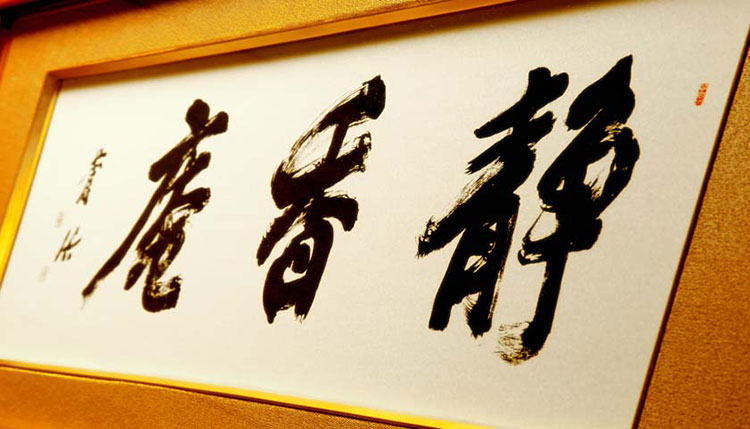 静香庵